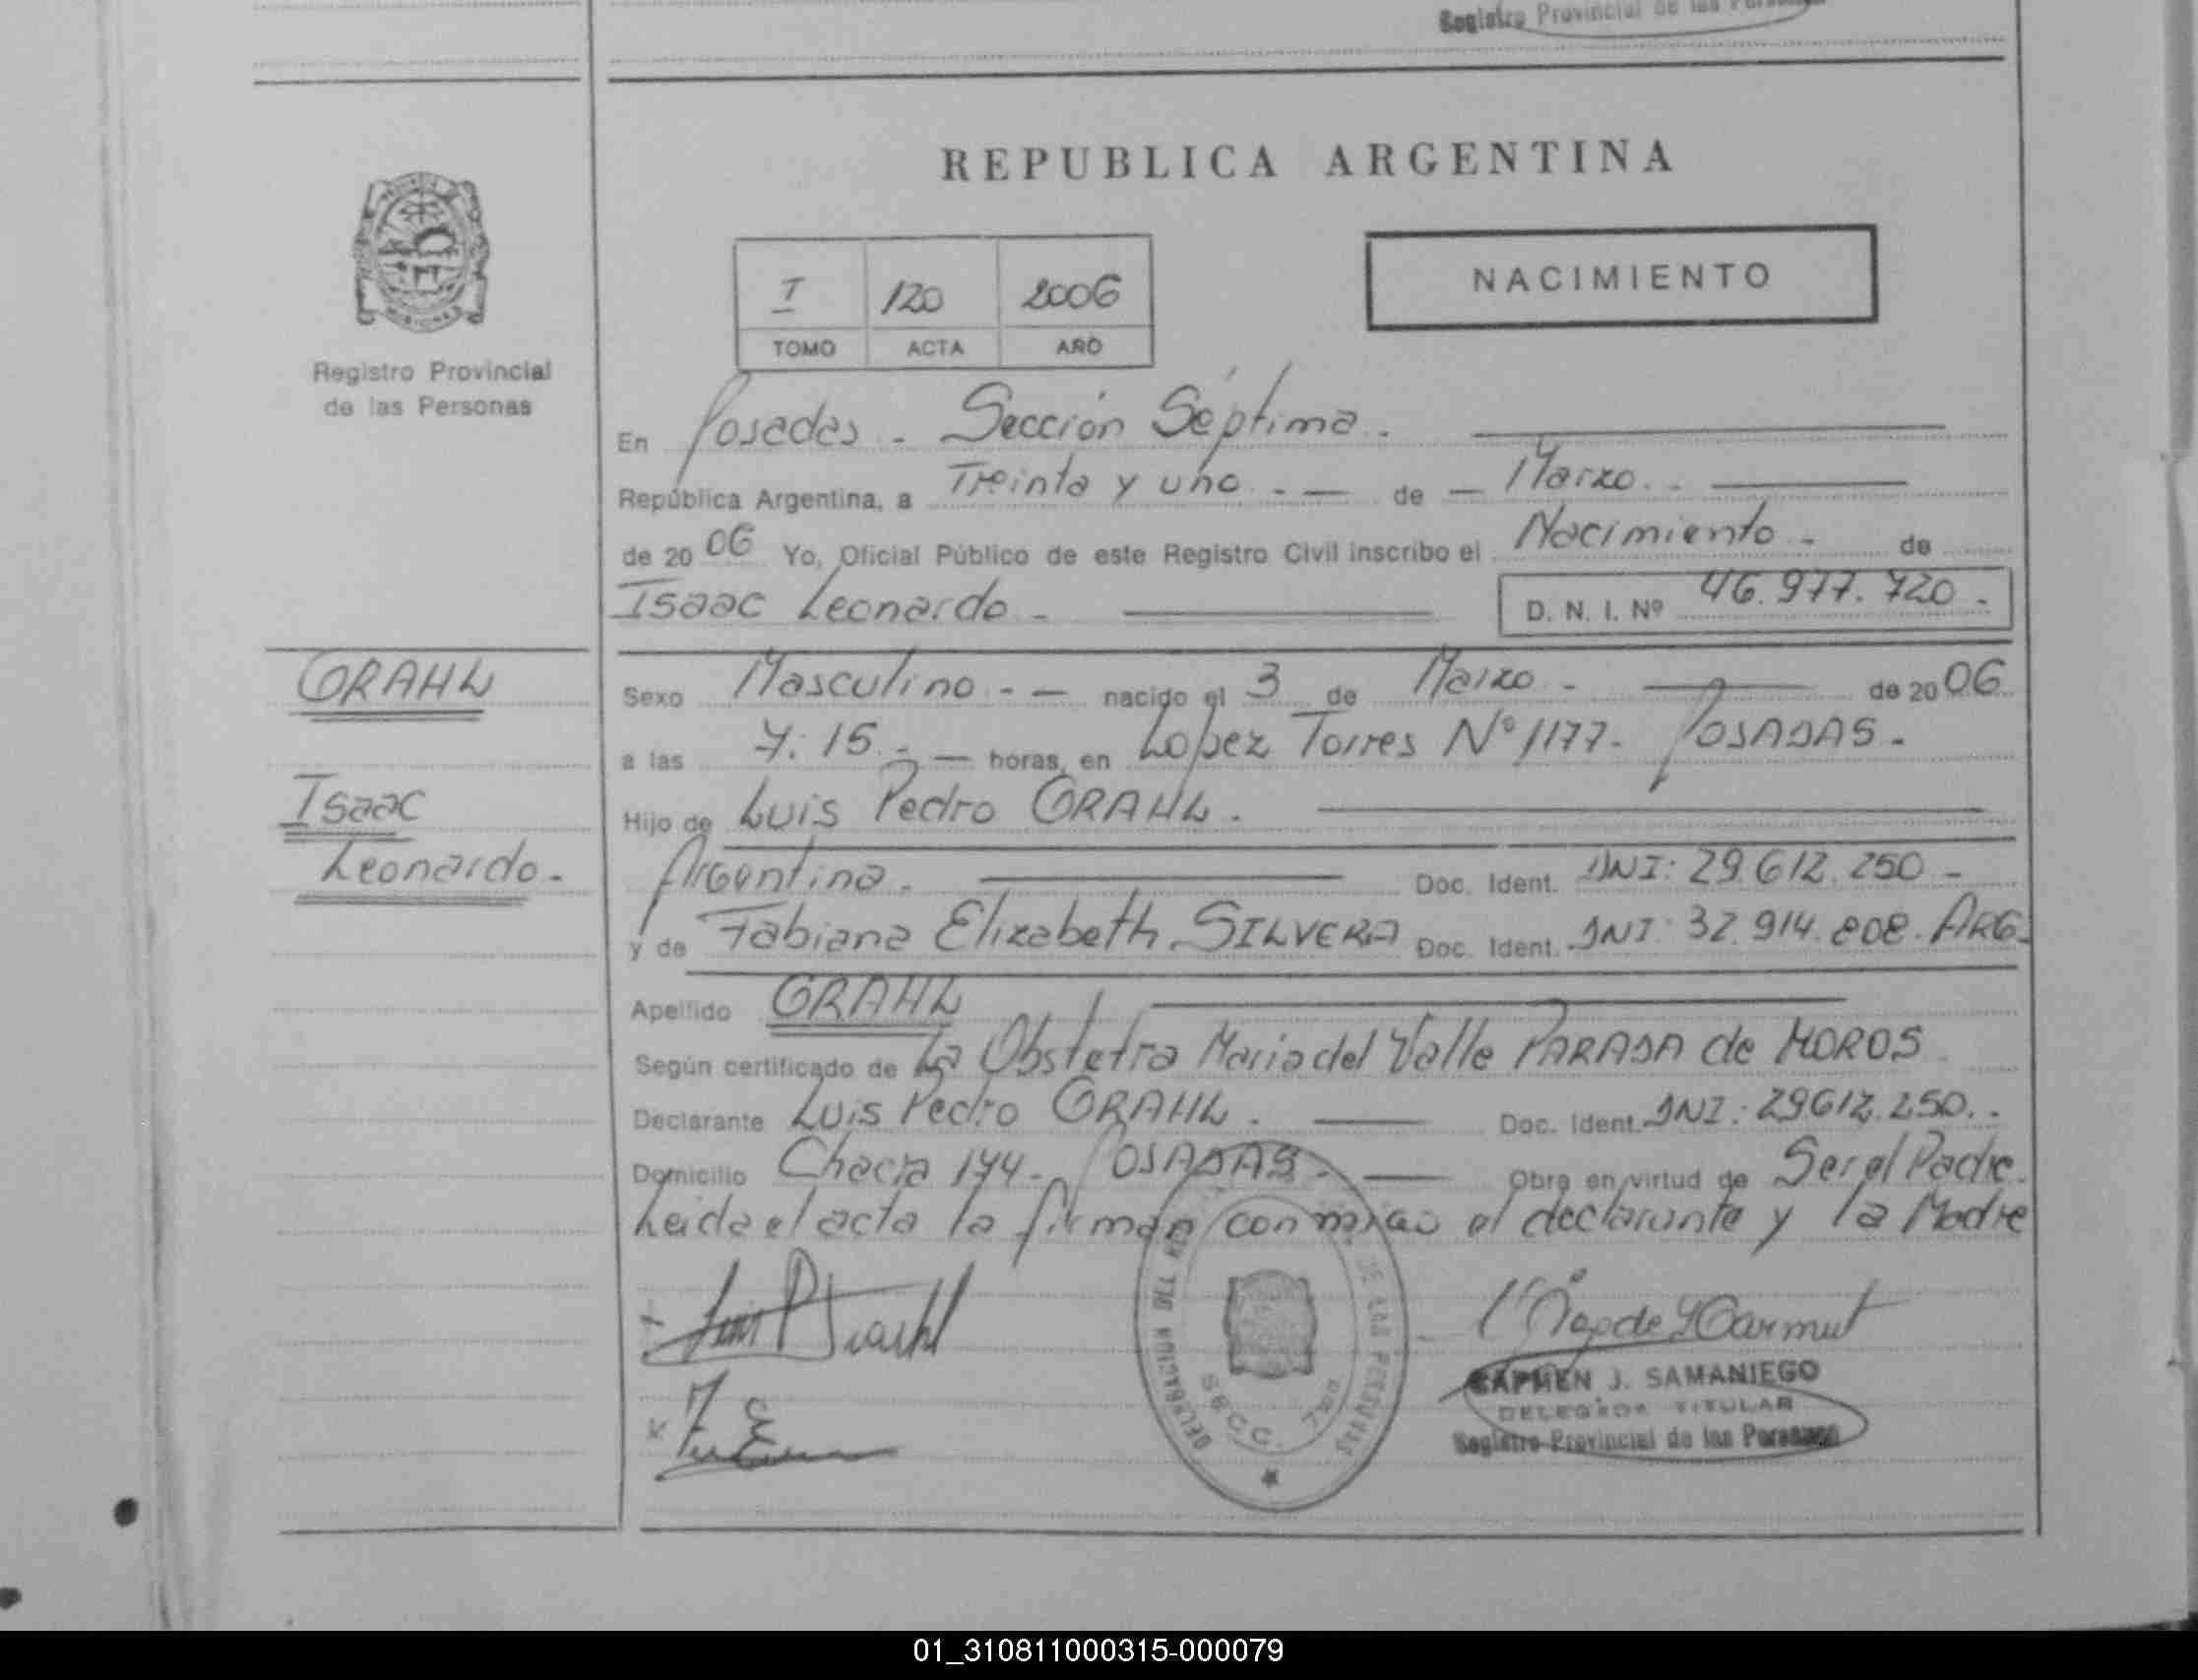 Registro Provincial de las
REPUBLICA ARGENTINA
I 120 2006
TOMO ACTA AÑO
NACIMIENTO
Registro Provincial
de las Personas
En Posadas - Sección Séptima.
República Argentina, a Treinta y uno - - de - Marzo. -
de 2006 Yo, Oficial Público de este Registro Civil inscribo el Nacimiento - de
Isaac Leonardo - D. N. I. Nº 46.977.720 -
GRAHL
Isaac
Leonardo -
Sexo Masculino - - nacido el 3 de Marzo - de 2006
a las 7:15 - - horas, en Lopez Torres Nº 1177 - POSADAS -
Hijo de Luis Pedro GRAHL.
Argentina. Doc. Ident. DNI: 29.612.250 -
y de Fabiana Elizabeth SILVERA Doc. Ident. DNI: 32.914.808. ARG.
Apellido GRAHL
Según certificado de La Obstetra Maria del Valle PARADA de MOROS
Declarante Luis Pedro GRAHL. Doc. Ident. DNI: 29612.250. -
Domicilio Chacra 144 - POSADAS - Obra en virtud de Ser el Padre.
Leida el acta la firman conmigo el declarante y la Madre
DELEGACION DEL DE LAS PERSONAS
SECC. 7ma
CARMEN J. SAMANIEGO
DELEGADA TITULAR
Registro Provincial de las Personas
01_310811000315-000079